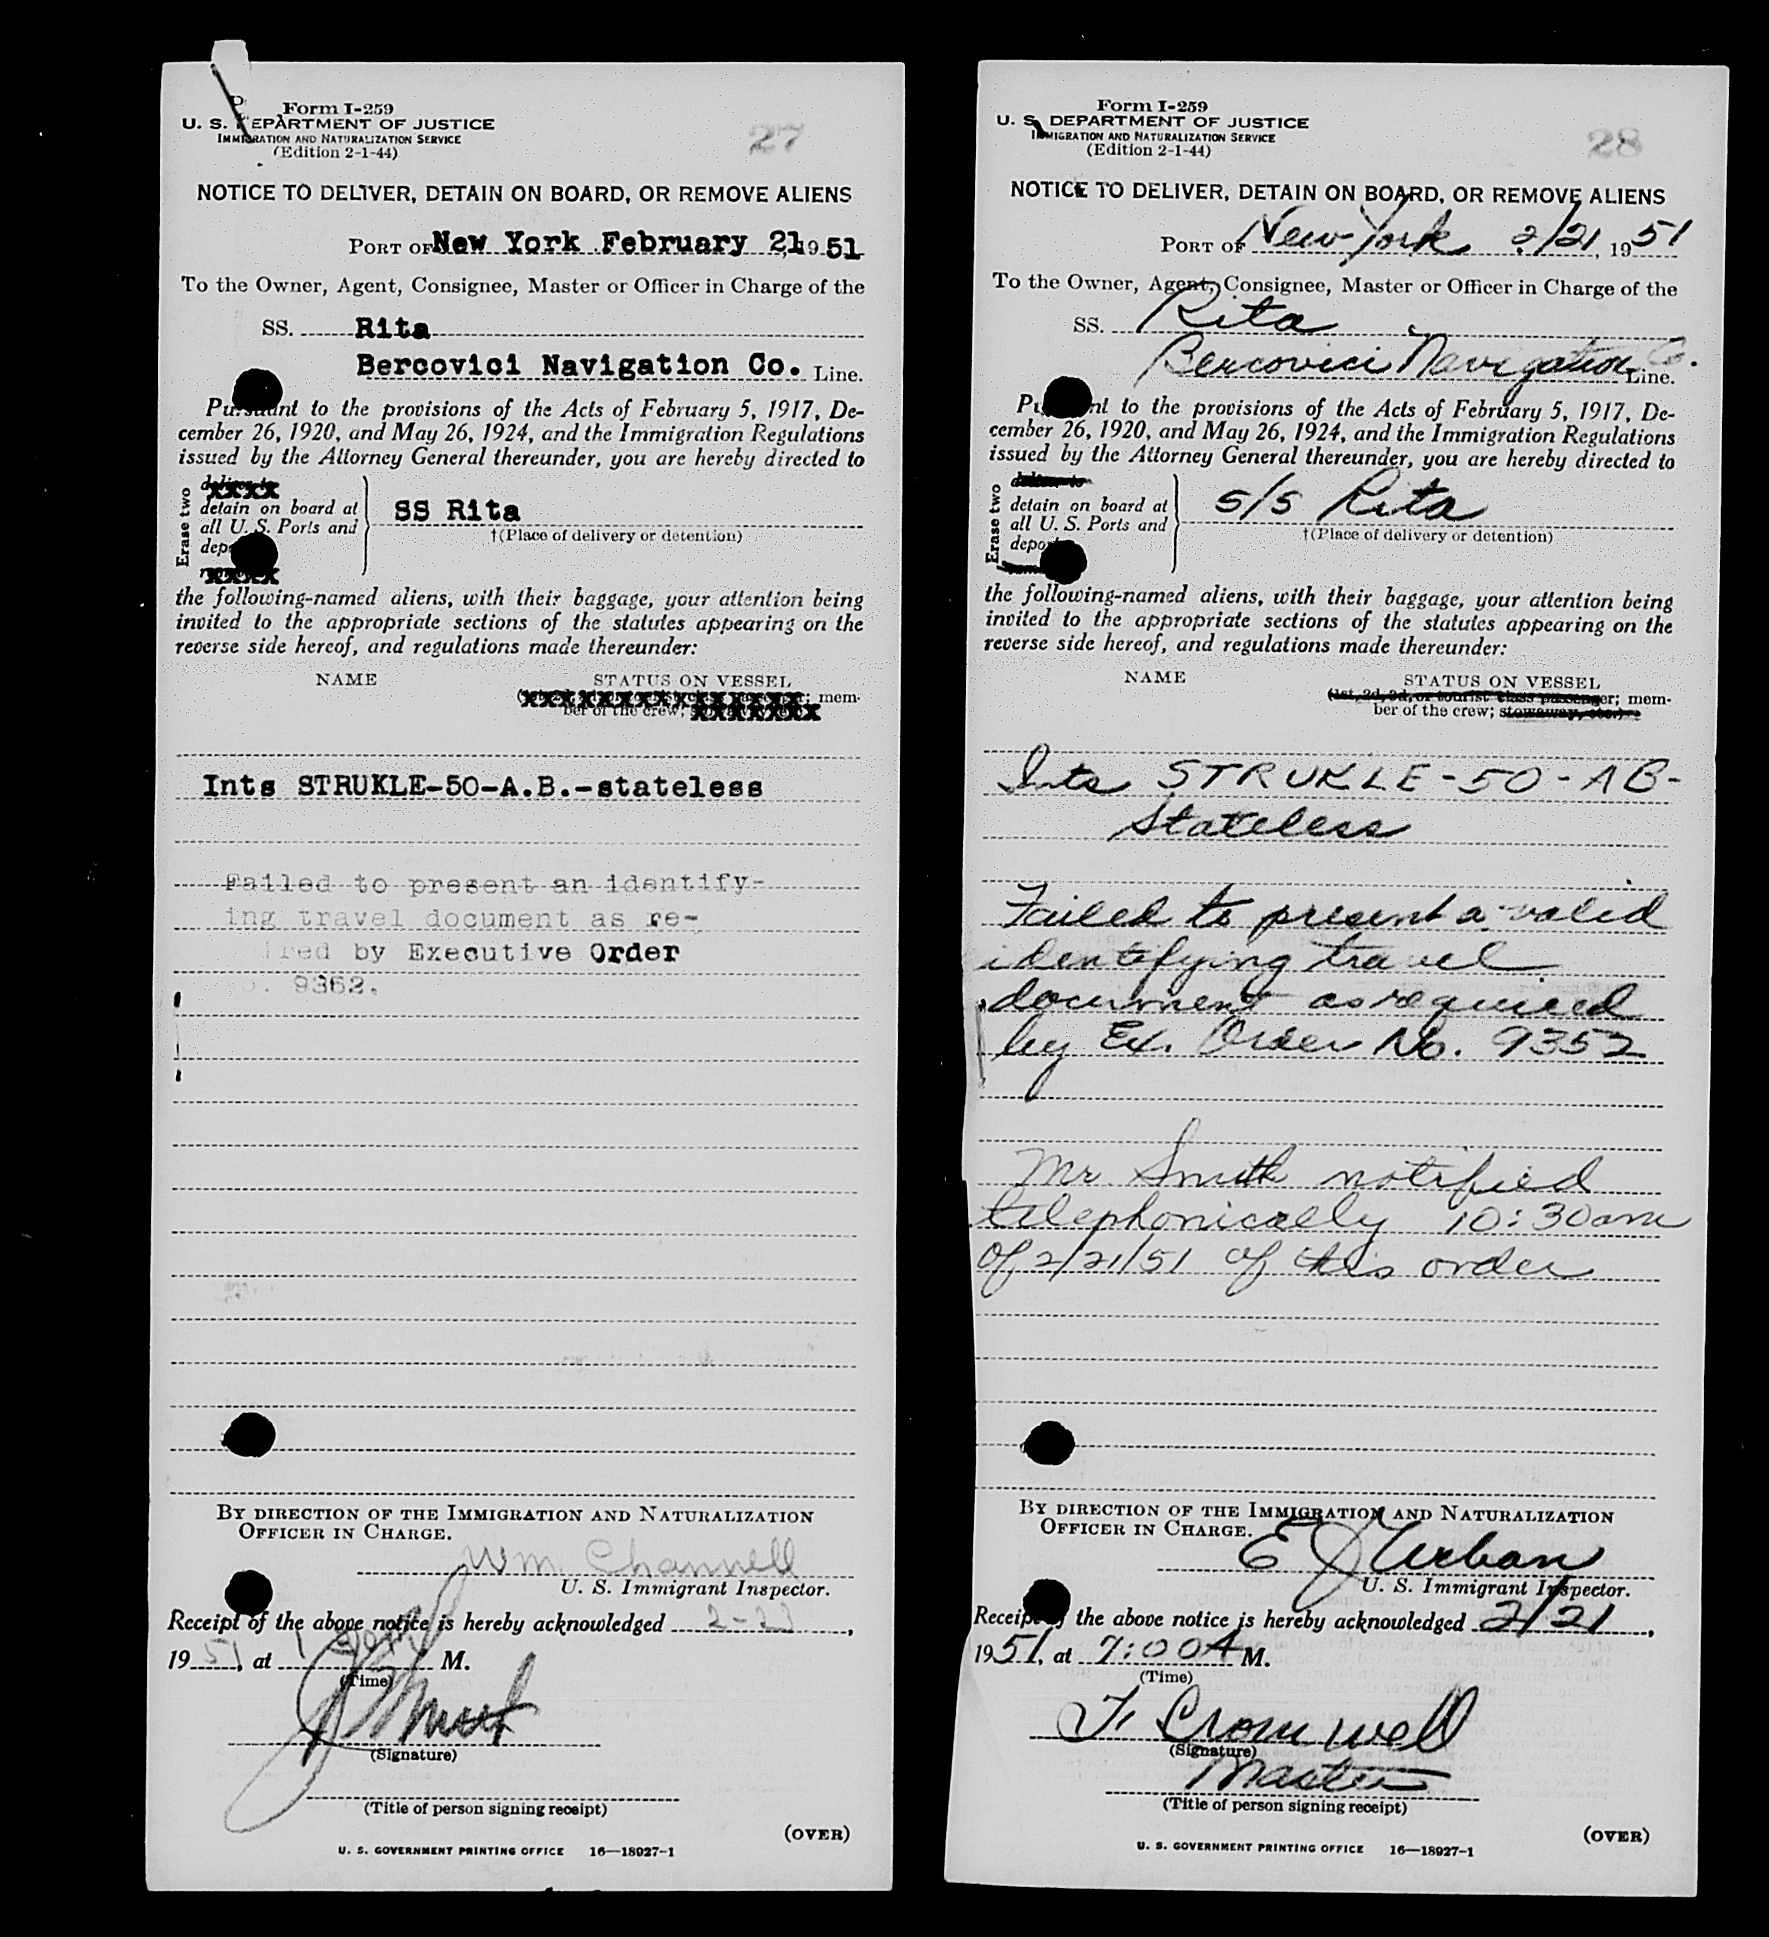 Form I-259
U. S. DEPARTMENT OF JUSTICE
IMMIGRATION AND NATURALIZATION SERVICE
(Edition 2-1-44)
27
NOTICE TO DELIVER, DETAIN ON BOARD, OR REMOVE ALIENS
PORT OF New York February 21, 1951
To the Owner, Agent, Consignee, Master or Officer in Charge of the
SS. Rita
Bercovici Navigation Co. Line.
Pursuant to the provisions of the Acts of February 5, 1917, De-
cember 26, 1920, and May 26, 1924, and the Immigration Regulations
issued by the Attorney General thereunder, you are hereby directed to
Erase two
deliver to
detain on board at
all U. S. Ports and
SS Rita
†(Place of delivery or detention)
the following-named aliens, with their baggage, your attention being
invited to the appropriate sections of the statutes appearing on the
reverse side hereof, and regulations made thereunder:
NAME STATUS ON VESSEL
; mem-
ber of the crew;
Ints STRUKLE-50-A.B.-stateless
Failed to present an identify-
ing travel document as re-
ired by Executive Order
9352.
BY DIRECTION OF THE IMMIGRATION AND NATURALIZATION
OFFICER IN CHARGE.
Wm Channell
U. S. Immigrant Inspector.
Receipt of the above notice is hereby acknowledged 2-23,
1951, at M.
(Time)
(Signature)
(Title of person signing receipt)
(OVER)
U. S. GOVERNMENT PRINTING OFFICE 16—18927-1
Form I-259
U. S. DEPARTMENT OF JUSTICE
IMMIGRATION AND NATURALIZATION SERVICE
(Edition 2-1-44)
28
NOTICE TO DELIVER, DETAIN ON BOARD, OR REMOVE ALIENS
PORT OF New York 2/21, 1951
To the Owner, Agent, Consignee, Master or Officer in Charge of the
SS. Rita
Bercovici Navigation Co. Line.
Pursuant to the provisions of the Acts of February 5, 1917, De-
cember 26, 1920, and May 26, 1924, and the Immigration Regulations
issued by the Attorney General thereunder, you are hereby directed to
Erase two
deliver to
detain on board at
all U. S. Ports and
s/s Rita
†(Place of delivery or detention)
the following-named aliens, with their baggage, your attention being
invited to the appropriate sections of the statutes appearing on the
reverse side hereof, and regulations made thereunder:
NAME STATUS ON VESSEL
(1st, 2d, 3d, or tourist class passenger; mem-
ber of the crew; stowaway, etc.)
Ints STRUKLE-50-AB-
Stateless
Failed to present a valid
identifying travel
document as required
by Ex. Order No. 9352
Mr Smith notified
telephonically 10:30am
of 2/21/51 of this order
BY DIRECTION OF THE IMMIGRATION AND NATURALIZATION
OFFICER IN CHARGE.
E J Urban
U. S. Immigrant Inspector.
Receipt of the above notice is hereby acknowledged 2/21,
1951, at 7:00 A M.
(Time)
F. Cromwell
(Signature)
Master
(Title of person signing receipt)
(OVER)
U. S. GOVERNMENT PRINTING OFFICE 16—18927-1